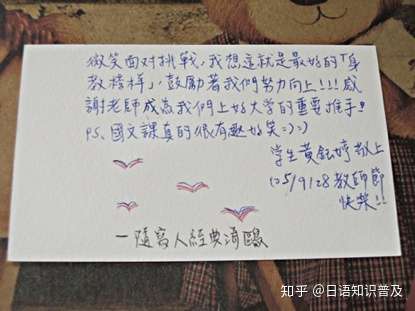 微笑面对挑戰，我想這就是最好的「身
教榜样」，鼓励著我們努力向上!!!感
謝老師成為我們上好大学的重要推手!
P.S. 國文課真的很有趣好笑=)=)
学生黃鈺婷敬上
105/9/28 教師節
快樂!!
—隨寫人經典海鷗
知乎 @日语知识普及